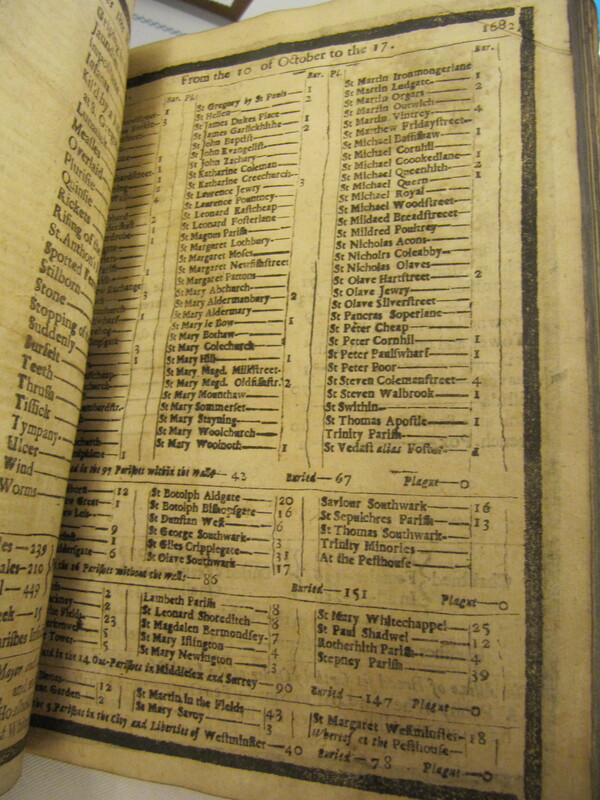 1682
From the 10 of October to the 17.
Bur. Pl.
St Gregory by St Pauls 1
St Hellen 2
St James Dukes Place 1
St James Garlickhithe 2
St John Baptist
St John Evangelist
St John Zachary
St Katharine Coleman
St Katharine Creechurch
St Lawrence Jewry 3
St Lawrence Pountney
St Leonard Eastcheap
St Leonard Fosterlane
St Magnus Parish
St Margaret Lothbury
St Margaret Moses
St Margaret Newfishstreet
St Margaret Pattons
St Mary Abchurch
St Mary Aldermanbury 2
St Mary Aldermary
St Mary le Bow 1
St Mary Bothaw
St Mary Colechurch
St Mary Hill 1
St Mary Magd. Milkstreet
St Mary Magd. Oldfishstr. 2
St Mary Mounthaw
St Mary Sommerset
St Mary Stayning
St Mary Woolchurch
St Mary Woolnoth 1
Bur. Pl.
Bur.
St Martin Ironmongerlane
St Martin Ludgate 1
St Martin Orgars 2
St Martin Outwich
St Martin Vintrey 4
St Matthew Fridaystreet
St Michael Bassishaw 1
St Michael Cornhil
St Michael Coookedlane 1
St Michael Queenhith 2
St Michael Quern 1
St Michael Royal
St Michael Woodstreet
St Mildred Breadstreet
St Mildred Poultrey
St Nicholas Acons
St Nicholas Coleabby
St Nicholas Olaves
St Olave Hartstreet 2
St Olave Jewry
St Olave Silverstreet
St Pancras Soperlane
St Peter Cheap
St Peter Cornhil 1
St Peter Paulswharf 1
St Peter Poor
St Steven Colemanstreet 4
St Steven Walbrook 1
St Swithin
St Thomas Apostle 1
Trinity Parish
St Vedast alias Foster
in the 97 Parishes within the Walls 42 Buried 67 Plague 0
St Botolph Aldgate 20
St Botolph Bishopsgate 16
St Dunstan West 6
St George Southwark 3
St Giles Cripplegate 31
St Olave Southwark 17
Saviour Southwark 16
St Sepulchres Parish 13
St Thomas Southwark
Trinity Minories
At the Pesthouse
the 16 Parishes without the Walls 86 Buried 151 Plague 0
Lambeth Parish 8
St Leonard Shoreditch 8
St Magdalen Bermondsey 7
St Mary Islington 4
St Mary Newington 3
St Mary Whitechappel 25
St Paul Shadwel 12
Rotherhith Parish 4
Stepney Parish 39
in the 14 Out-Parishes in Middlesex and Surrey 90 Buried 147 Plague 0
Garden 2
St Martin in the Fields 43
St Mary Savoy 3
St Margaret Westminster 18
Whereof at the Pesthouse
the 5 Parishes in the City and Liberties of Westminster 40 Buried 78 Plague 0
Measles
Overlaid
Plurisie
Quinsie
Rickets
Rising of the
St. Anthon
Spotted Fe
Stilborn
Stone
Stopping of
Suddenly
Surfeit
Teeth
Thrush
Tissick
Tympany
Ulcer
Wind
Worms